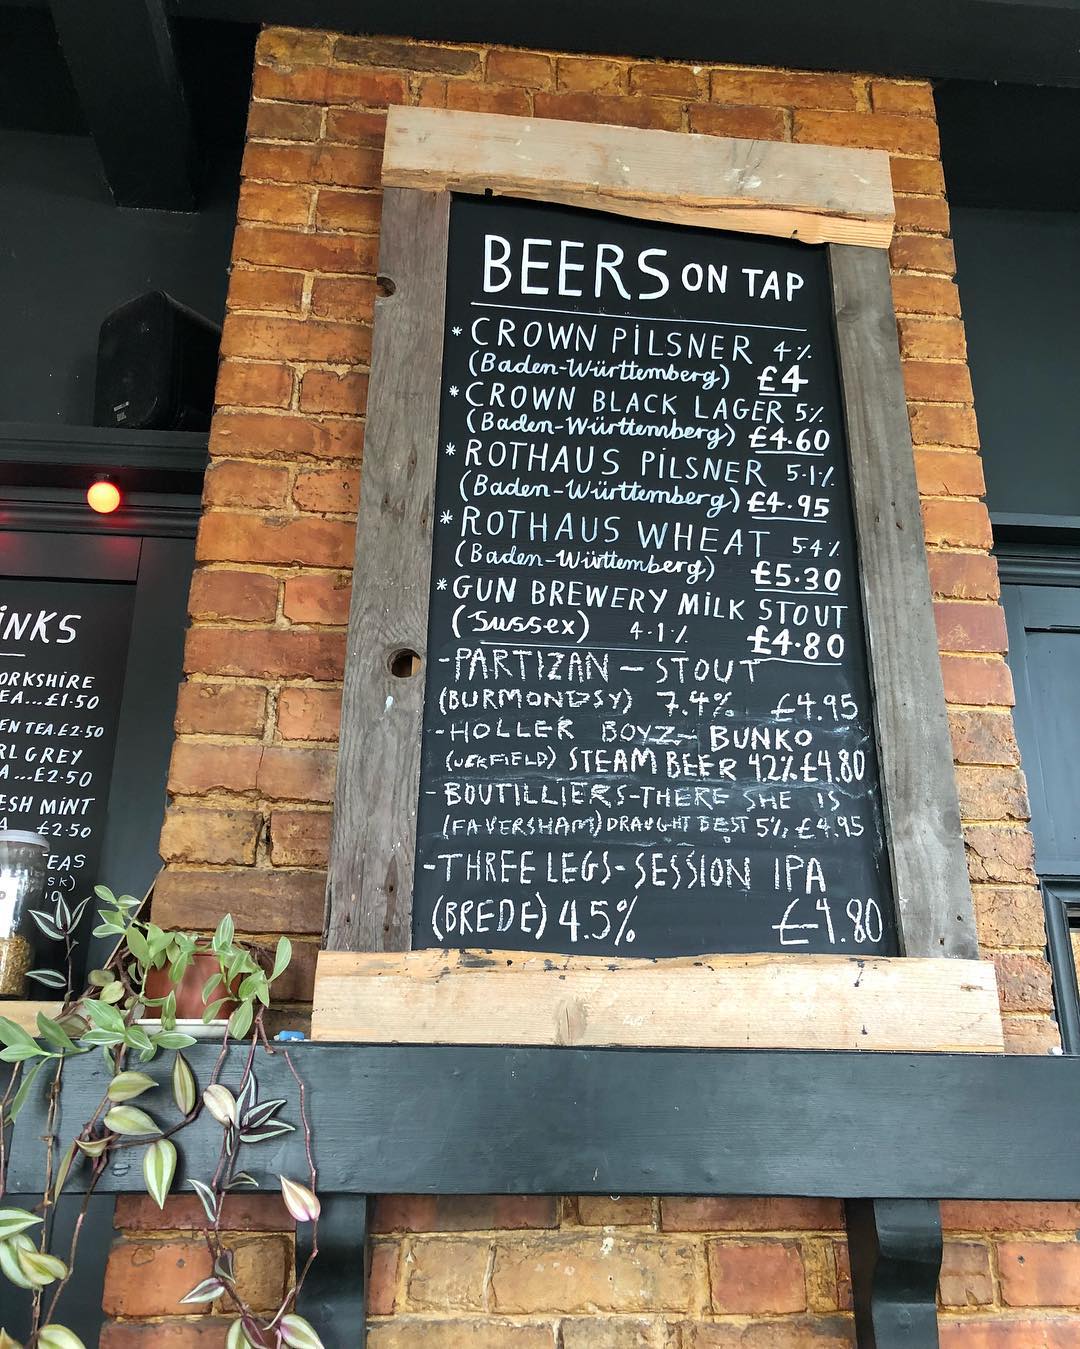 BEERS ON TAP
* CROWN PILSNER 4%
(Baden-Württemberg) £4
* CROWN BLACK LAGER 5%
(Baden-Württemberg) £4.60
* ROTHAUS PILSNER 5.1%
(Baden-Württemberg) £4.95
* ROTHAUS WHEAT 5.4%
(Baden-Württemberg) £5.30
* GUN BREWERY MILK STOUT
(Sussex) 4.1% £4.80
- PARTIZAN - STOUT
(BURMONDSY) 7.4% £4.95
- HOLLER BOYZ - BUNKO
(UCKFIELD) STEAM BEER 4.2% £4.80
- BOUTILLIERS - THERE SHE IS
(FAVERSHAM) DRAUGHT BEST 5% £4.95
- THREE LEGS - SESSION IPA
(BREDE) 4.5% £4.80
INKS
ORKSHIRE
EA...£1.50
EN TEA.£2.50
RL GREY
A...£2.50
ESH MINT
A £2.50
EAS
SK)